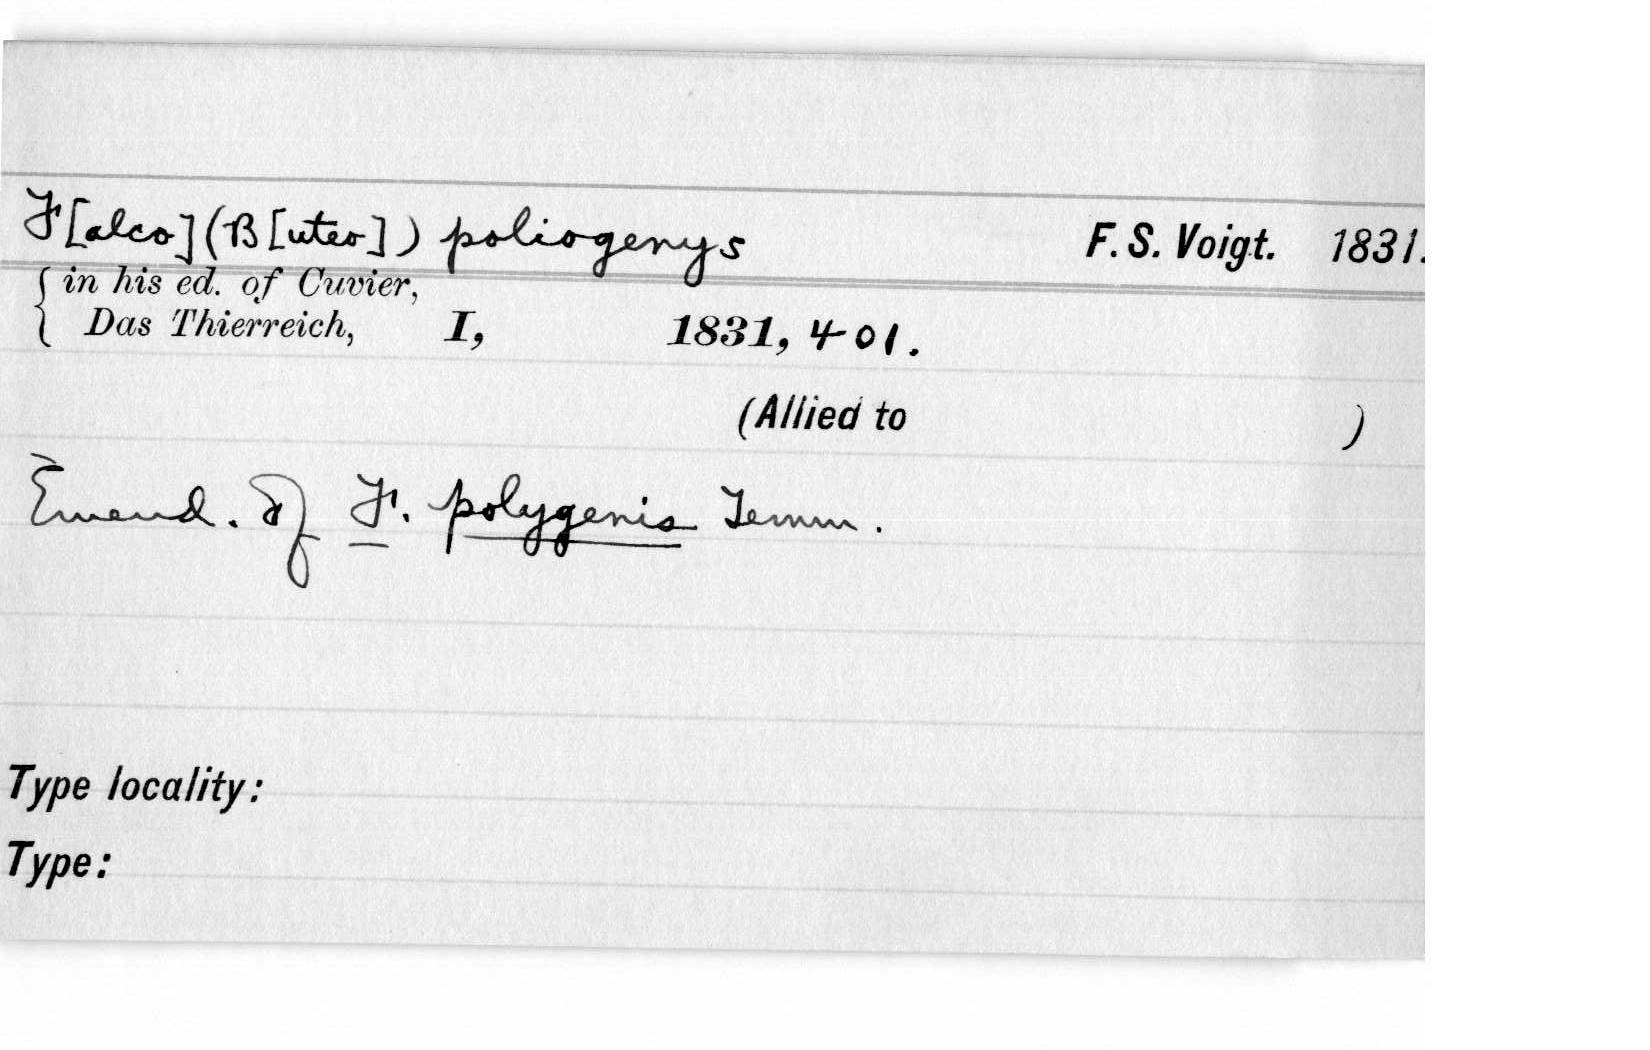 F[alco](B[uteo]) poliogenys F. S. Voigt. 1831.
in his ed. of Cuvier,
Das Thierreich, I, 1831, 401.
(Allied to )
Emend. of F. polygenis Temm.
Type locality:
Type: